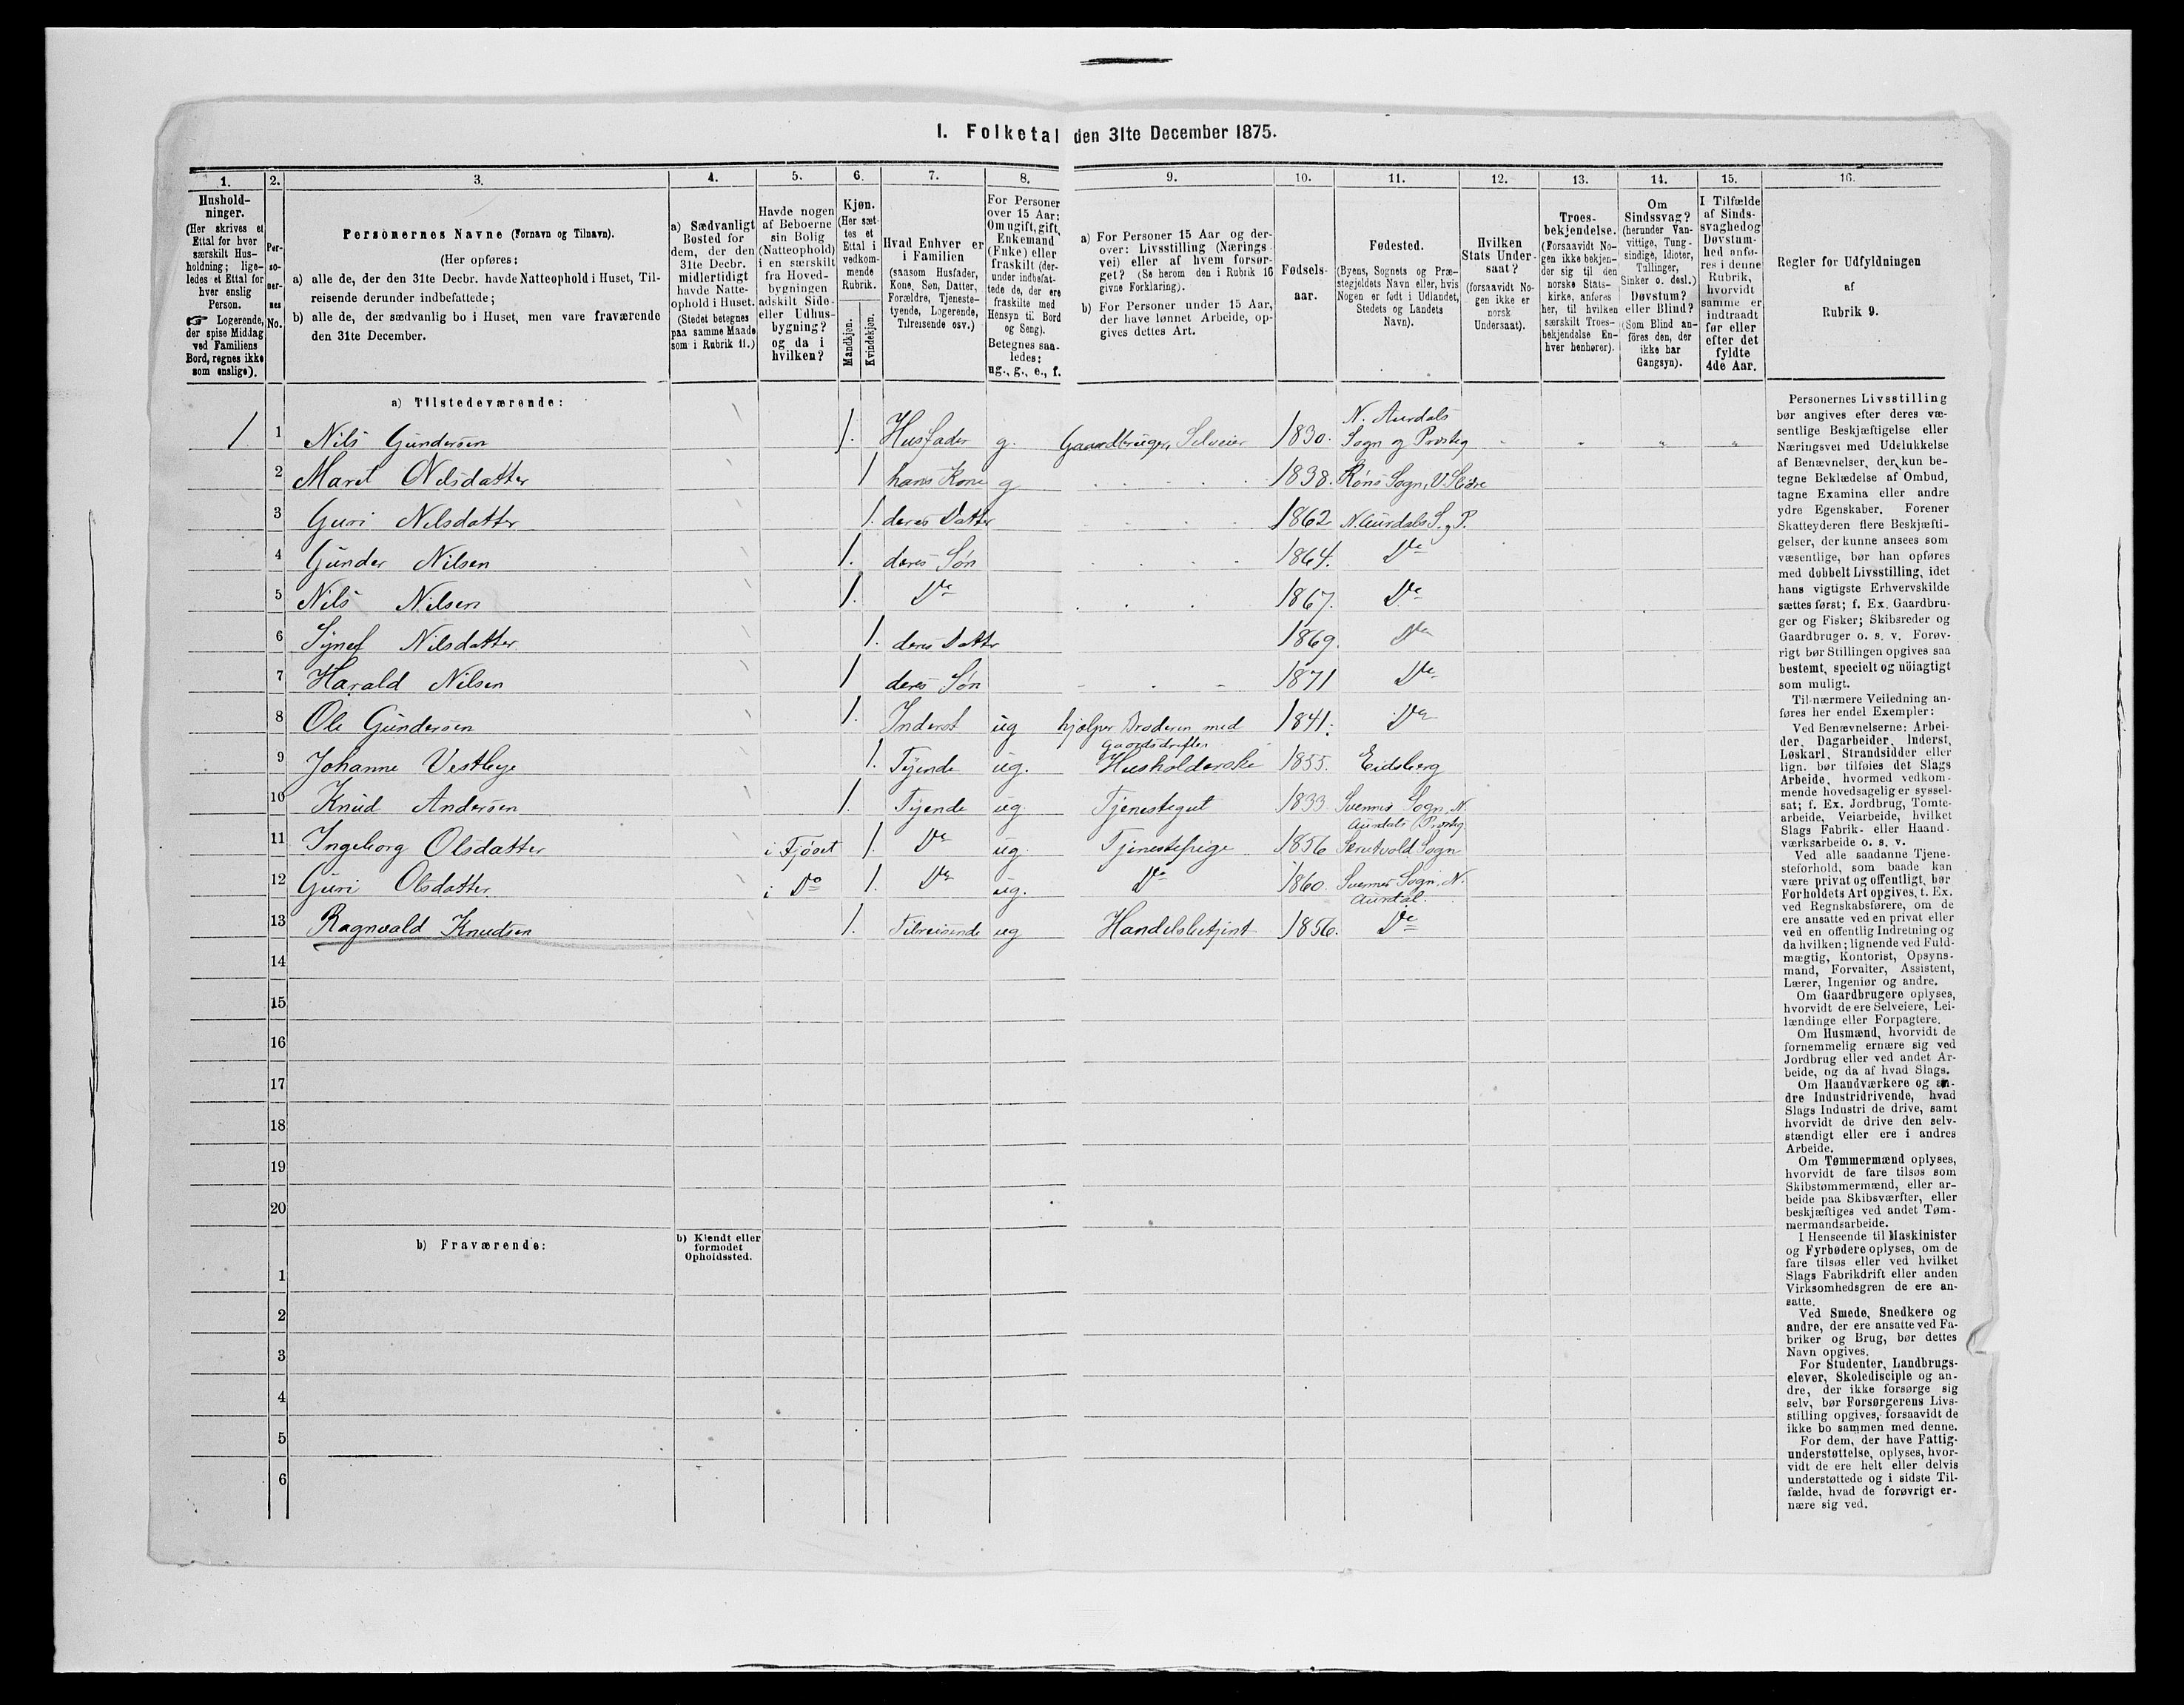 1. Folketal den 31te December 1875.
1. 2. 3. 4. 5. 6. 7. 8. 9. 10. 11. 12. 13. 14. 15. 16.
Hushold-
ninger.
(Her skrives et
Ettal for hver
særskilt Hus-
holdning; lige-
ledes et Ettal for
hver enslig
Person.
☞ Logerende,
der spise Middag
ved Familiens
Bord, regnes ikke
som enslige).
Per-
so-
ner-
nes
No.
Personernes Navne (Fornavn og Tilnavn).
(Her opføres:
a) alle de, der den 31te Decbr. havde Natteophold i Huset, Til-
reisende derunder indbefattede;
b) alle de, der sædvanlig bo i Huset, men vare fraværende
den 31te December.
a) Sædvanligt
Bosted for
dem, der den
31te Decbr.
midlertidigt
havde Natte-
ophold i Huset.
(Stedet betegnes
paa samme Maade
som i Rubrik 11.)
Havde nogen
af Beboerne
sin Bolig
(Natteophold)
i en særskilt
fra Hoved-
bygningen
adskilt Side-
eller Udhus-
bygning?
og da i
hvilken?
Kjøn.
(Her sæt-
tes et
Ettal i
vedkom-
mende
Rubrik.
Mandkjøn.
Kvindekjøn.
Hvad Enhver er
i Familien
(saasom Husfader,
Kone, Søn, Datter,
Forældre, Tjeneste-
tyende, Logerende,
Tilreisende osv.)
For Personer
over 15 Aar:
Om ugift, gift,
Enkemand
(Enke) eller
fraskilt (der-
under indbefat-
tede de, der ere
fraskilte med
Hensyn til Bord
og Seng).
Betegnes saa-
ledes:
ug., g., e., f.
a) For Personer 15 Aar og der-
over: Livsstilling (Nærings-
vei) eller af hvem forsør-
get? (Se herom den i Rubrik 16
givne Forklaring).
b) For Personer under 15 Aar,
der have lønnet Arbeide, op-
gives dettes Art.
Fødsels-
aar.
Fødested.
(Byens, Sognets og Præ-
stegjeldets Navn eller, hvis
Nogen er født i Udlandet,
Stedets og Landets
Navn).
Hvilken
Stats Under-
saat?
(forsaavidt No-
gen ikke er
norsk
Undersaat).
Troes-
bekjendelse.
(Forsaavidt No-
gen ikke bekjen-
der sig til den
norske Stats-
kirke, anføres
her, til hvilken
særskilt Troes-
bekjendelse En-
hver henhører).
Om
Sindssvag?
(herunder Van-
vittige, Tung-
sindige, Idioter,
Tullinger,
Sinker o. desl.)
Døvstum?
eller Blind?
(Som Blind an-
føres den, der
ikke har
Gangsyn).
I Tilfælde
af Sinds-
svaghed og
Døvstum-
hed anfø-
res i denne
Rubrik,
hvorvidt
samme er
indtraadt
før eller
efter det
fyldte
4de Aar.
Regler for Udfyldningen
af
Rubrik 9.
a) Tilstedeværende:
1 1 Nils Gundersen 1. Husfader g. Gaardbruger, Selveier 1830. N. Aurdals
Sogn og Præsteg
2 Marit Nilsdatter 1 hans Kone g 1838. Røns Sogn, V. Slidre
3 Guri Nilsdatter 1. deres Datter 1862 N. Aurdals S. og P.
4 Gunder Nilsen 1. deres Søn 1864. Do
5 Nils Nilsen 1. Do 1867. Do
6 Synef Nilsdatter 1. deres Datter 1869. Do
7 Harald Nilsen 1 deres Søn 1871 Do
8 Ole Gundersen 1. Inderst ug hjælper Broderen med
Gaardsdriften 1841. Do
9 Johanne Vestbye 1. Tyende ug. Husholderske 1855. Eidsberg
10 Knud Andersen 1. Tyende ug Tjenestegut 1833 Svennes Sogn, N.
Aurdals Præsteg
11 Ingeborg Olsdatter i Fjøset 1. Do ug. Tjenestepige 1856 Skrutvold Sogn
12 Guri Olsdatter i Do 1. Do ug. Do 1860. Svennes Sogn, N.
Aurdal.
13 Ragnvald Knudsen 1. Tilreisende ug Handelsbetjent 1856. Do
14
15
16
17
18
19
20
b) Fraværende:
b) Kjendt eller
formodet
Opholdssted.
1
2
3
4
5
6
Personernes Livsstilling
bør angives efter deres væ-
sentlige Beskjæftigelse eller
Næringsvei med Udelukkelse
af Benævnelser, der kun be-
tegne Beklædelse af Ombud,
tagne Examina eller andre
ydre Egenskaber. Forener
Skatteyderen flere Beskjæfti-
gelser, der kunne ansees som
væsentlige, bør han opføres
med dobbelt Livsstilling, idet
hans vigtigste Erhvervskilde
sættes først; f. Ex. Gaardbru-
ger og Fisker; Skibsreder og
Gaardbruger o. s. v. Forøv-
rigt bør Stillingen opgives saa
bestemt, specielt og nöiagtigt
som muligt.
Til nærmere Veiledning an-
føres her endel Exempler:
Ved Benævnelserne: Arbei-
der, Dagarbeider, Inderst,
Løskarl, Strandsidder eller
lign. bør tilføies det Slags
Arbeide, hvormed vedkom-
mende hovedsagelig er syssel-
sat; f. Ex. Jordbrug, Tomte-
arbeide, Veiarbeide, hvilket
Slags Fabrik- eller Haand-
værksarbeide o. s. v.
Ved alle saadanne Tjene-
steforhold, som baade kan
være privat og offentligt, bør
Forholdets Art opgives, t. Ex.
ved Regnskabsførere, om de
ere ansatte ved en privat eller
ved en offentlig Indretning og
da hvilken; lignende ved Fuld-
mægtig, Kontorist, Opsyns-
mand, Forvalter, Assistent,
Lærer, Ingeniør og andre.
Om Gaardbrugere oplyses,
hvorvidt de ere Selveiere, Lei-
lændinge eller Forpagtere.
Om Husmænd, hvorvidt de
fornemmelig ernære sig ved
Jordbrug eller ved andet Ar-
beide, og da af hvad Slags.
Om Haandværkere og an-
dre Industridrivende, hvad
Slags Industri de drive, samt
hvorvidt de drive den selv-
stændigt eller ere i andres
Arbeide.
Om Tømmermænd oplyses,
hvorvidt de fare tilsøs som
Skibstømmermænd, eller ar-
beide paa Skibsværfter, eller
beskjæftiges ved andet Tøm-
mermandsarbeide.
I Henseende til Maskinister
og Fyrbødere oplyses, om de
fare tilsøs eller ved hvilket
Slags Fabrikdrift eller anden
Virksomhedsgren de ere an-
satte.
Ved Smede, Snedkere og
andre, der ere ansatte ved Fa-
briker og Brug, bør dettes
Navn opgives.
For Studenter, Landbrugs-
elever, Skoledisciple og an-
dre, der ikke forsørge sig
selv, bør Forsørgerens Livs-
stilling opgives, forsaavidt de
ikke bo sammen med denne.
For dem, der have Fattig-
understøttelse, oplyses, hvor-
vidt de ere helt eller delvis
understøttede og i sidste Til-
fælde, hvad de forøvrigt er-
nære sig ved.